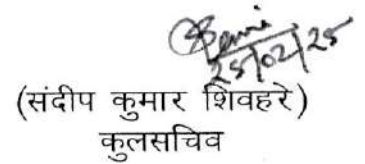 25/02/25
(संदीप कुमार शिवहरे)
कुलसचिव